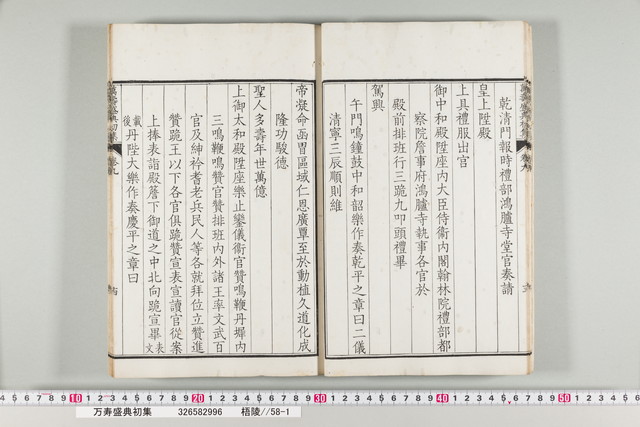 乾清門報時禮部鴻臚寺堂官奏請
皇上陞殿
上具禮服出宮
御中和殿陞座內大臣侍衞內閣翰林院禮部都
察院詹事府鴻臚寺執事各官於
殿前排班行三跪九叩頭禮畢
駕興
午門鳴鐘鼓中和韶樂作奏乾平之章曰二儀
清寧三辰順則維
帝凝命函冒區域仁恩廣覃至於動植久道化成
隆功駿德
聖人多壽年世萬億
上御太和殿陞座樂止鑾儀衞官贊鳴鞭丹墀內
三鳴鞭鳴贊官贊排班內外諸王率文武百
官及紳衿耆老兵民人等各就拜位立贊進
贊跪王以下各官俱跪贊宣表宣讀官從案
上捧表詣殿簷下御道之中北向跪宣畢表文
載後丹陛大樂作奏慶平之章曰
萬壽盛典初集
卷九
万寿盛典初集 326582996 梧陵//58-1
10 20 30 40 50